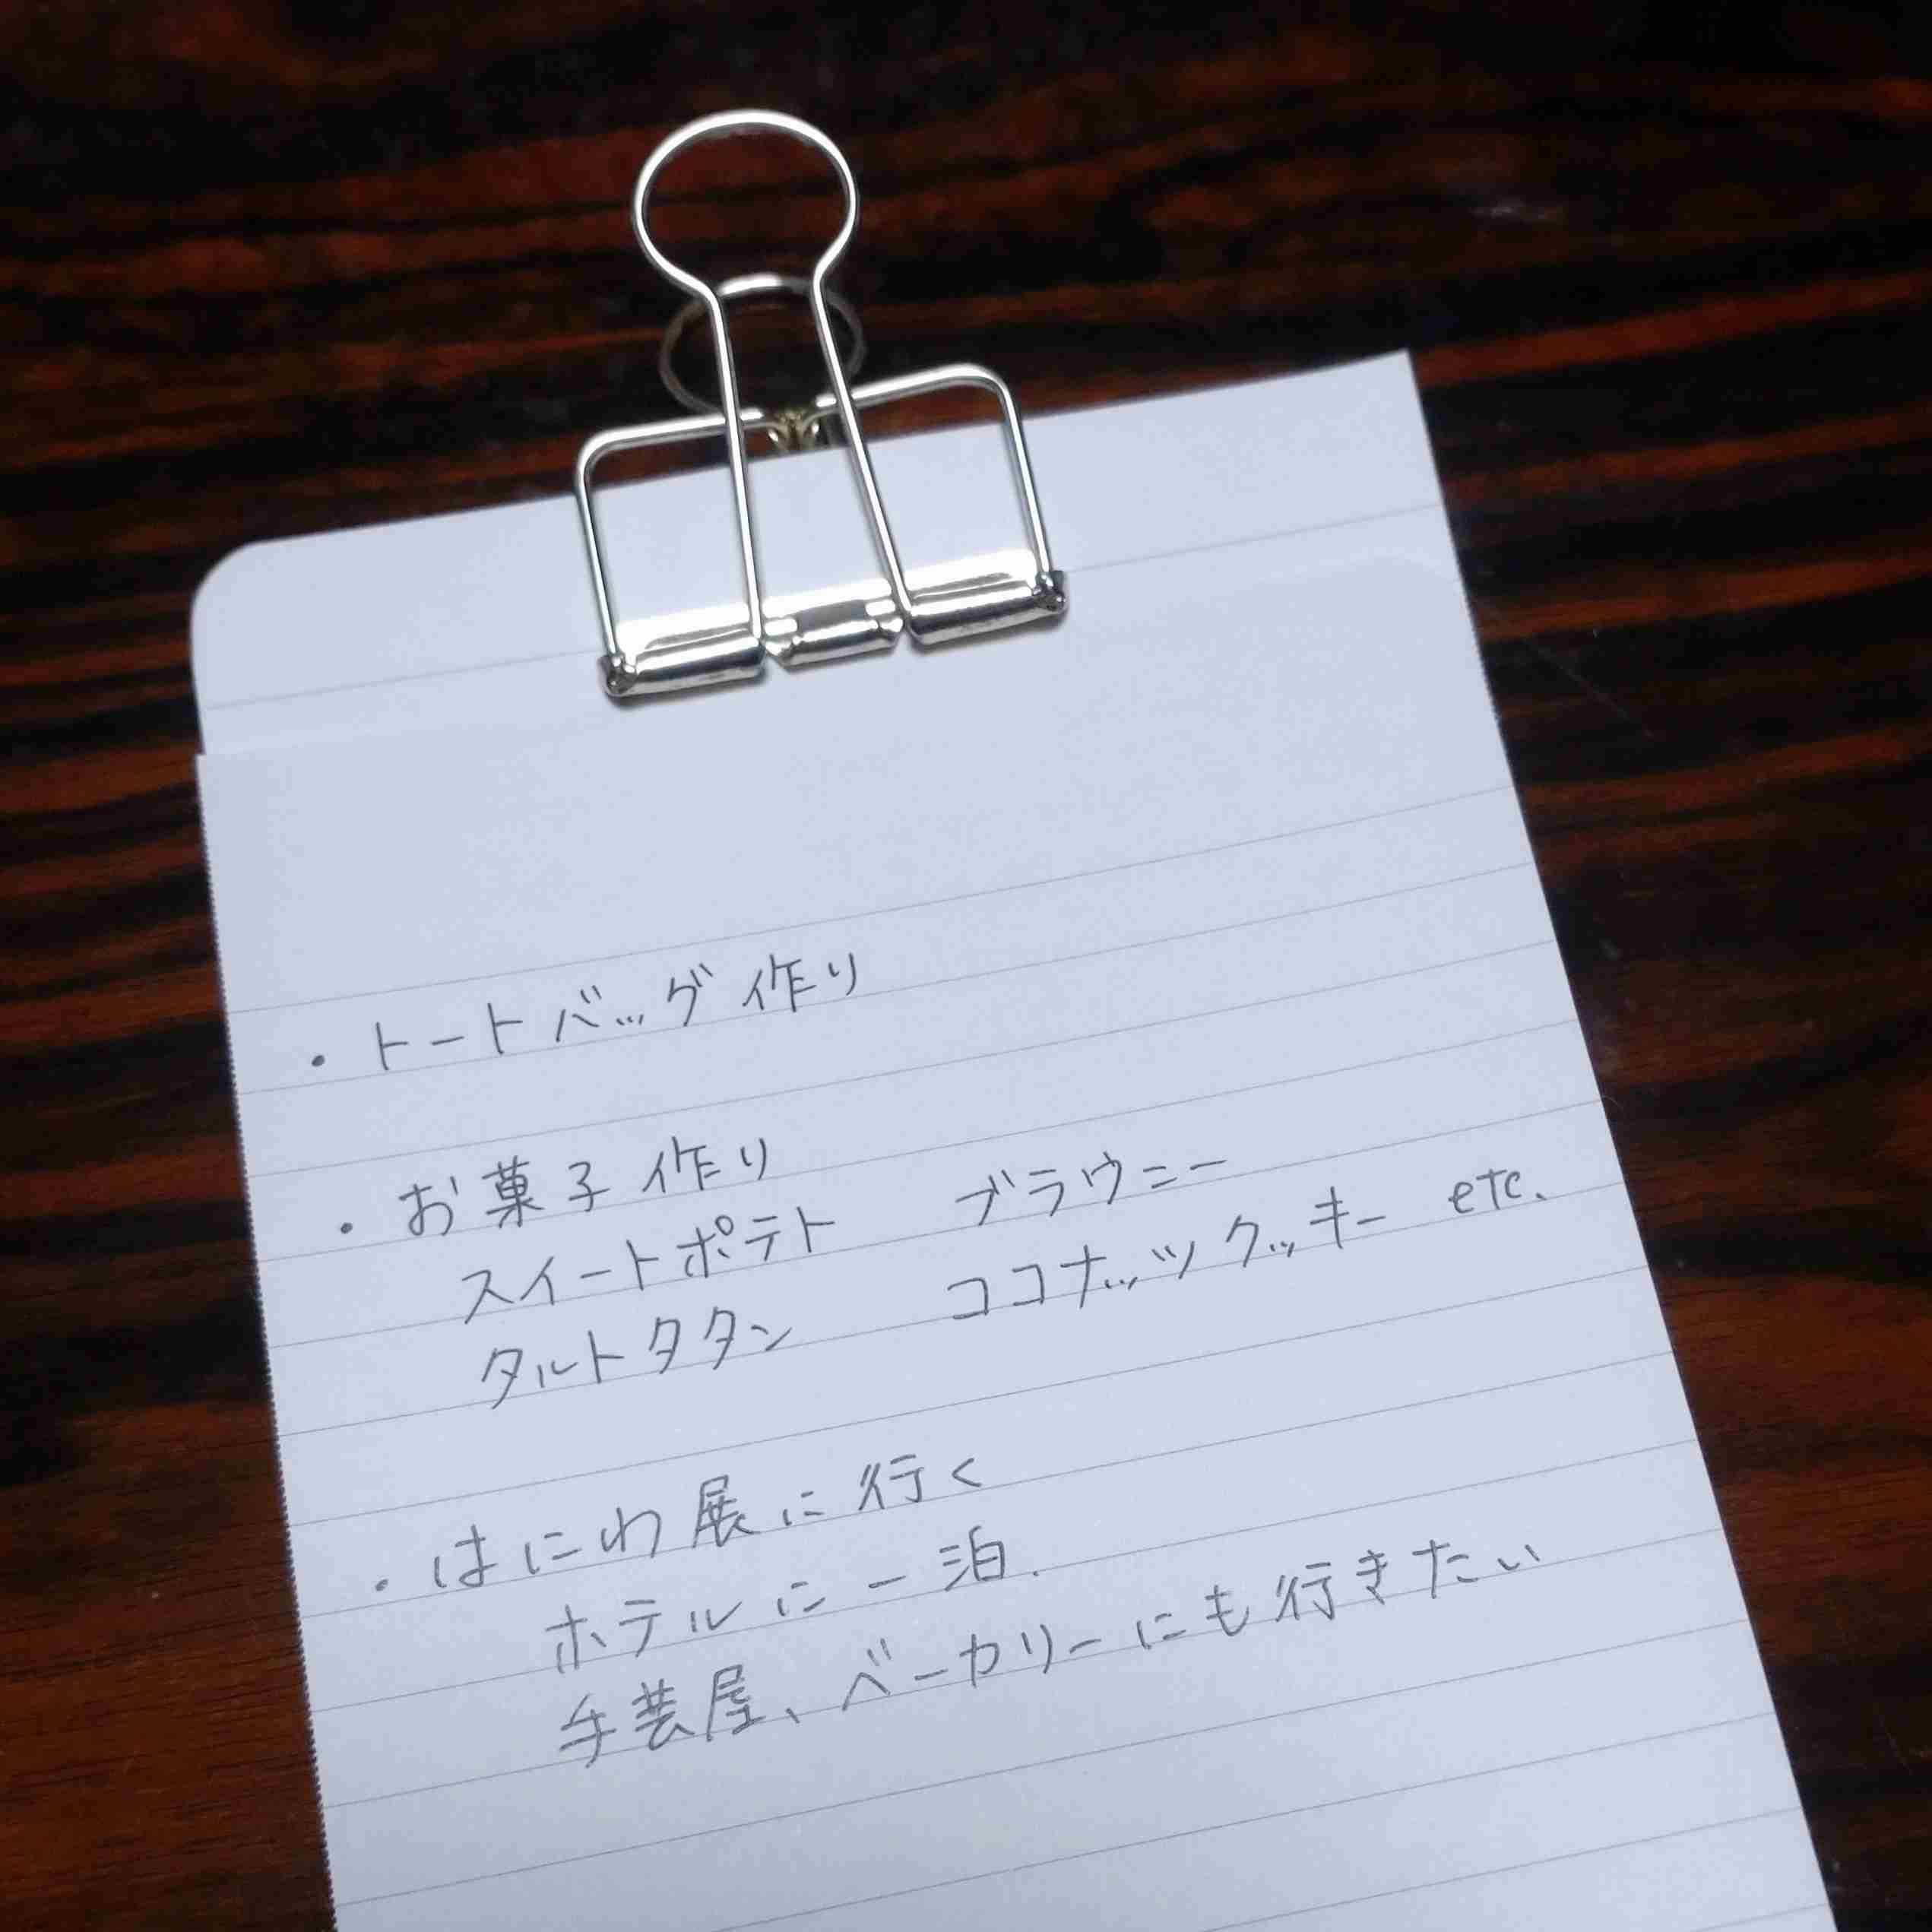 ・トートバッグ作り
・お菓子作り
スイートポテト ブラウニー
タルトタタン ココナッツクッキー etc.
・はにわ展に行く
ホテルに一泊.
手芸屋、ベーカリーにも行きたい